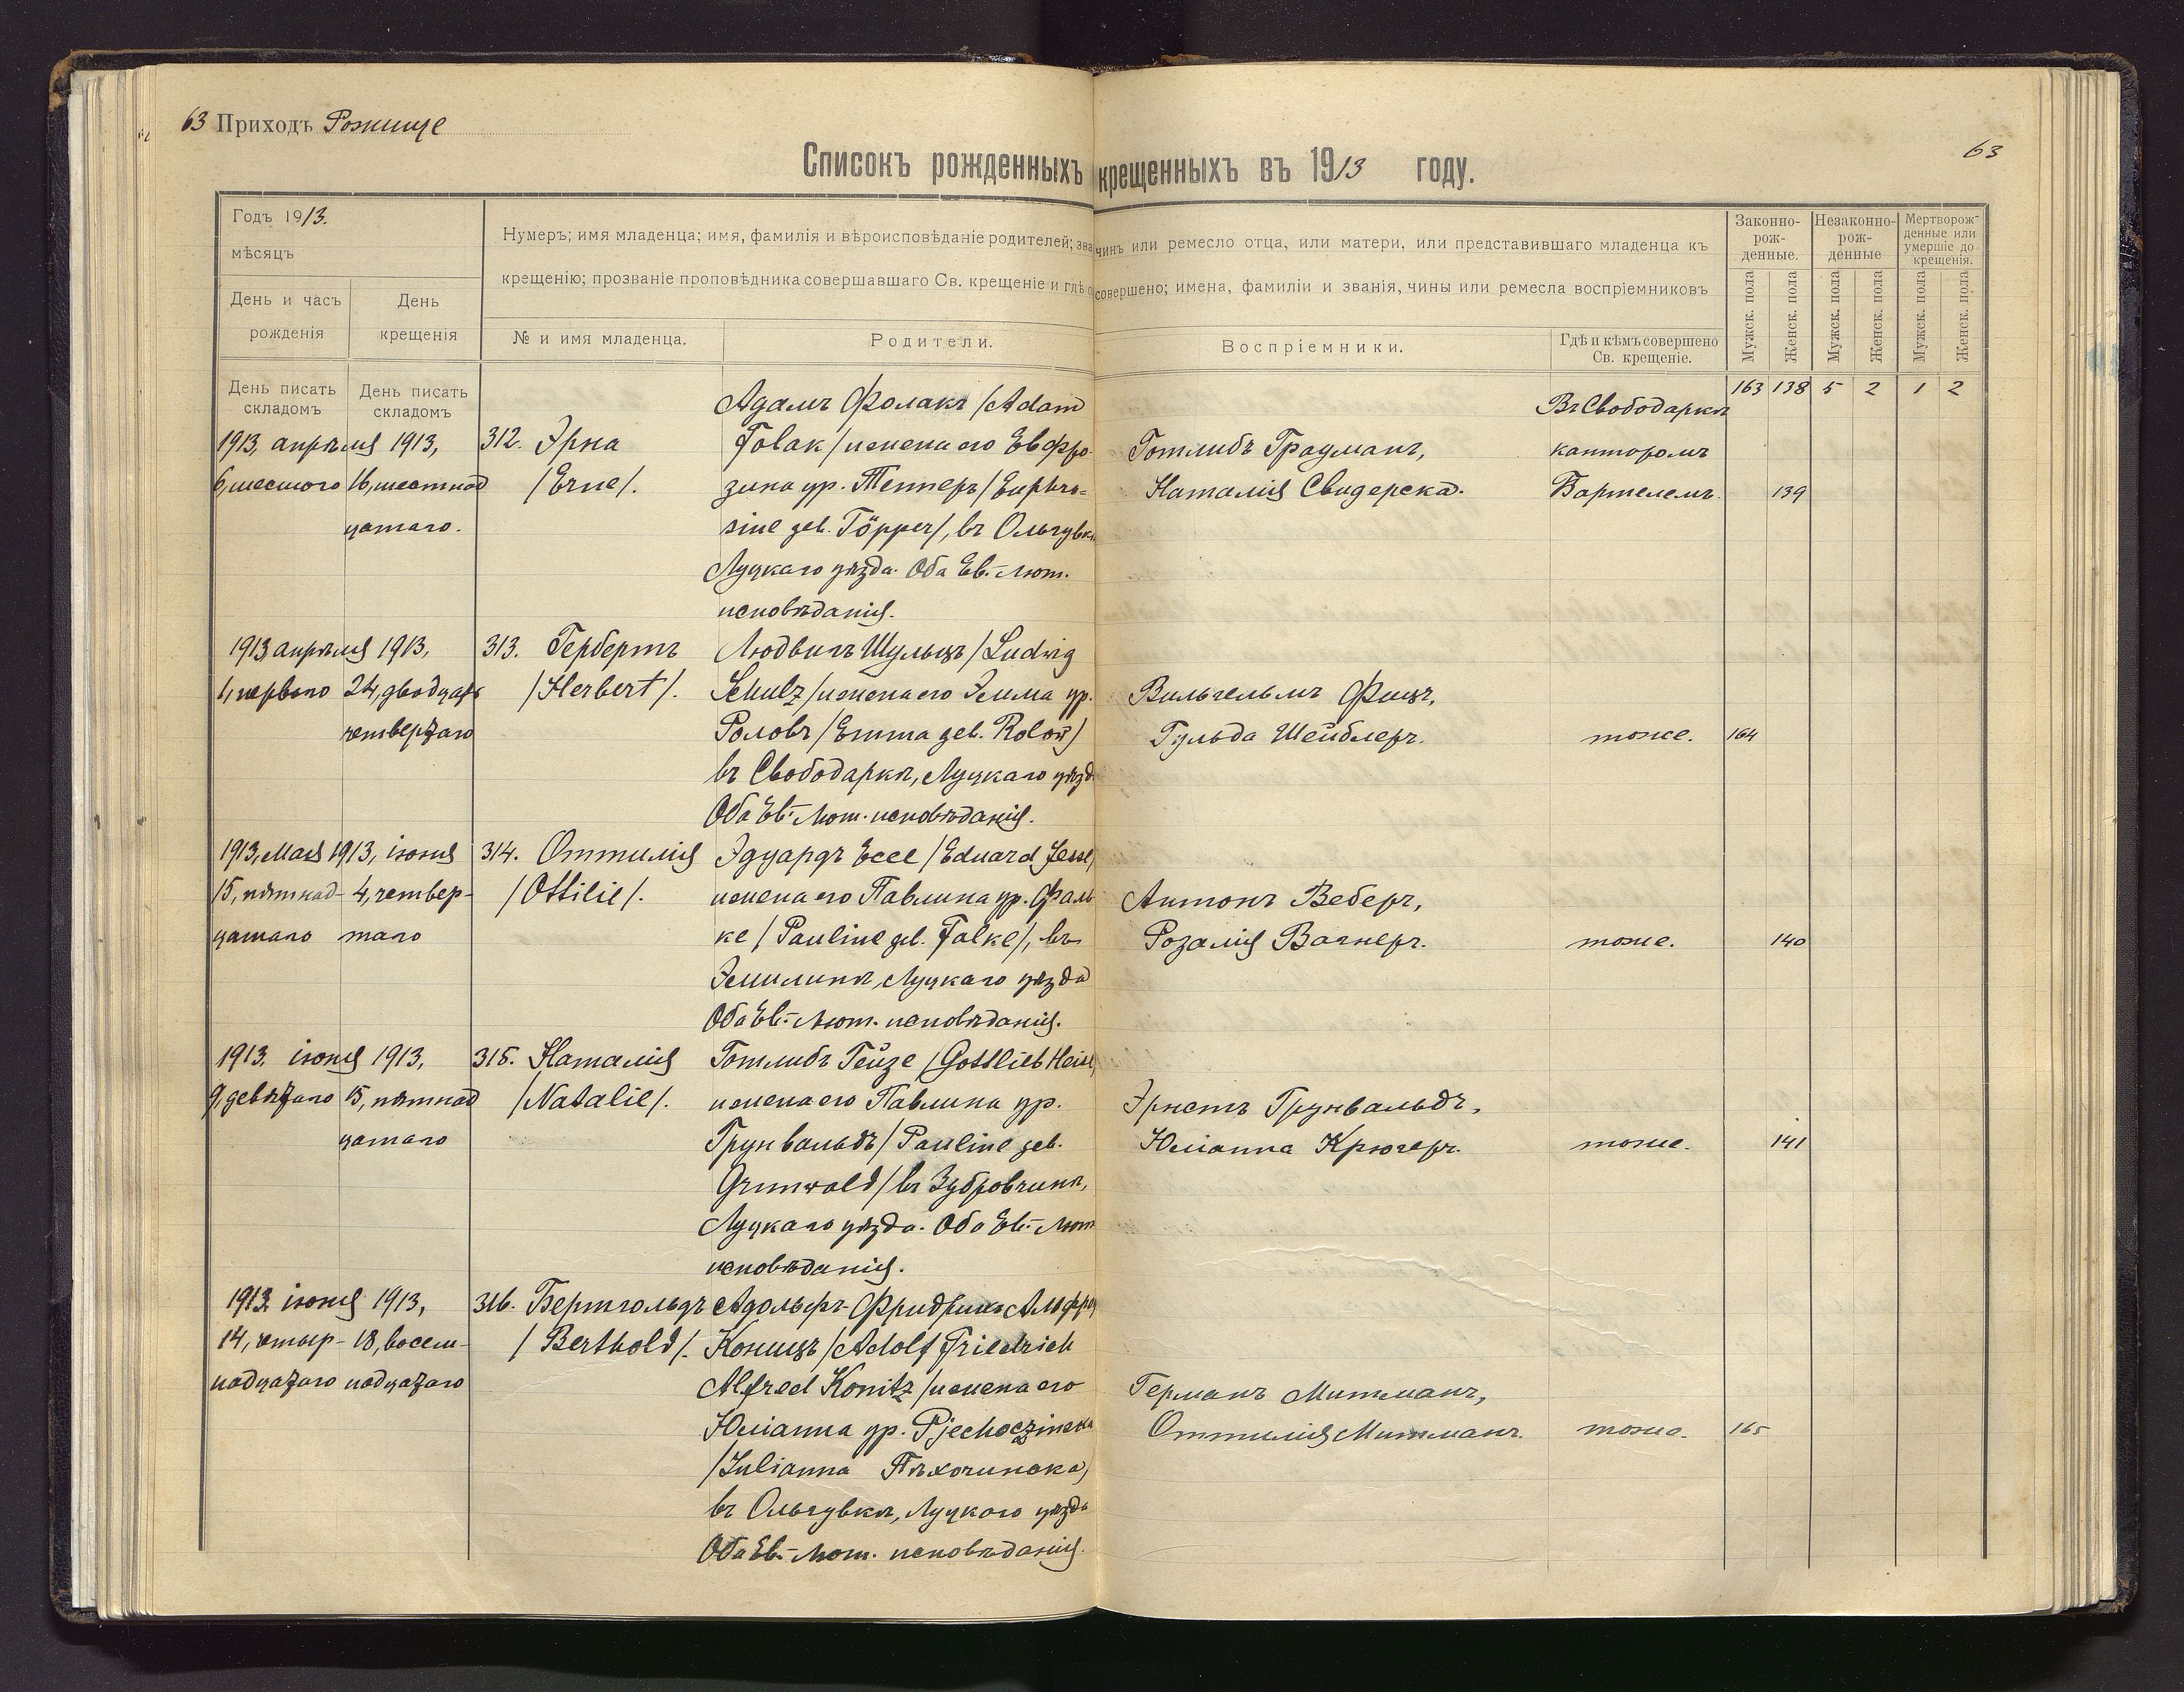 63 Приходъ Рожище
63
Списокъ рожденныхъ крещенныхъ въ 1913 году.
Годъ 1913.
мѣсяцъ
День и часъ рожденія
День крещенія
Нумеръ; имя младенца; имя, фамилія и вѣроисповѣданіе родителей; зва чинъ или ремесло отца, или матери, или представившаго младенца къ
крещенію; прозваніе проповѣдника совершавшаго Св. крещеніе и гдѣ о совершено; имена, фамиліи и званія, чины или ремесла воспріемниковъ
№ и имя младенца.
Родители.
Воспріемники.
Гдѣ и кѣмъ совершено
Св. крещеніе.
Законно-
рож-
денные.
Незаконно-
рож-
денные
Мертворож-
денные или
умершіе до
крещенія.
Мужск. пола
Женск. пола
Мужск. пола
Женск. пола
Мужск. пола
Женск. пола
День писать
складомъ
День писать
складомъ
163 138 5 2 1 2
1913, апрѣля
6, шестого
1913,
16, шестнад
цатаго.
312. Эрна
/Erne/.
Адамъ Фолакъ /Adam
Folak/ жена его Евфро-
зина ур. Тепперъ /Euphro-
sine geb. Töpper/, въ Ольгувкѣ
Луцкаго уѣзда. Оба Ев.-лют.
исповѣданія.
Готлибъ Градманъ,
Наталія Свидерска.
Въ Свободаркѣ
канторомъ
Бартелемъ.
139
1913 апрѣля
1, перваго
1913,
24, двадцать
четвертаго
313. Гербертъ
/Herbert/.
Людвигъ Шульцъ /Ludwig
Schulz/ жена его Эмма ур.
Роловъ /Emma geb. Rolow/
въ Свободаркѣ, Луцкаго уѣзд
Оба Ев.-лют. исповѣданія.
Вильгельмъ Фицъ,
Гульда Шейблеръ.
тоже.
164
1913, мая
15, пятнад-
цатаго
1913, іюня
4, четвер-
таго
314. Оттилія
/Ottilie/.
Эдуардъ Есее /Eduard Jesse/
жена его Павлина ур. Фаль
ке /Pauline geb. Falke/, въ
Эмилинѣ, Луцкаго уѣзда
Оба Ев.-лют. исповѣданія.
Антонъ Веберъ,
Розалія Вагнеръ.
тоже.
140
1913, іюня
9, девятаго
1913,
15, пятнад
цатаго
315. Наталія
/Natalie/.
Готлибъ Гейзе /Gottlieb Heise/
жена его Павлина ур.
Грунвальдъ /Pauline geb.
Grunwald/ въ Зубровчинѣ,
Луцкаго уѣзда. Оба Ев.-лют
исповѣданія.
Эрнстъ Грунвальдъ,
Юліанна Крюгеръ.
тоже.
141
1913, іюня
14, четыр-
надцатаго
1913,
18, восем-
надцатаго
316. Бертгольдъ
/Berthold/.
Адольфъ-Фридрихъ Альфред
Коницъ /Adolf Friedrich
Alfred Konitz/ жена его
Юліанна ур. Pjechoczinska
/Julianna Пѣхочинска/
въ Ольгувкѣ, Луцкаго уѣзда
Оба Ев.-лют. исповѣданія.
Германъ Митманъ,
Оттилія Митманъ.
тоже.
165